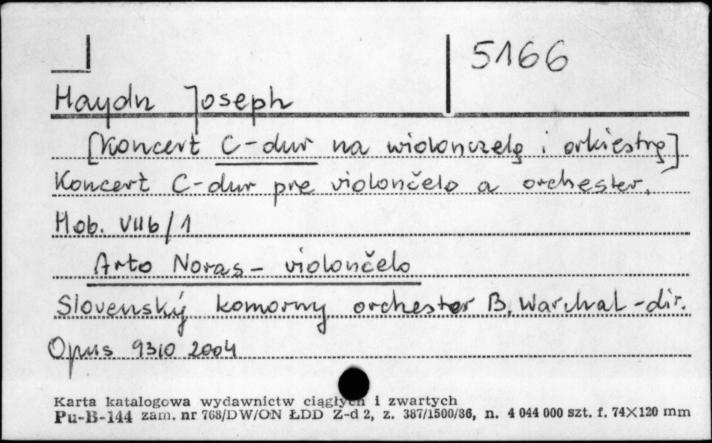 5166
Haydn Joseph
[Koncert C-dur na wiolonczelę i orkiestrę]
Koncert C-dur pre violončelo a orchester.
Hob. VIIb/1
Arto Noras - violončelo
Slovenský komorny orchester B. Warchal - dir.
Opus 9310 2004
Karta katalogowa wydawnictw ciągłych i zwartych
Pu-B-144 zam. nr 768/DW/ON ŁDD Z-d 2, z. 387/1500/86, n. 4 044 000 szt. f. 74×120 mm